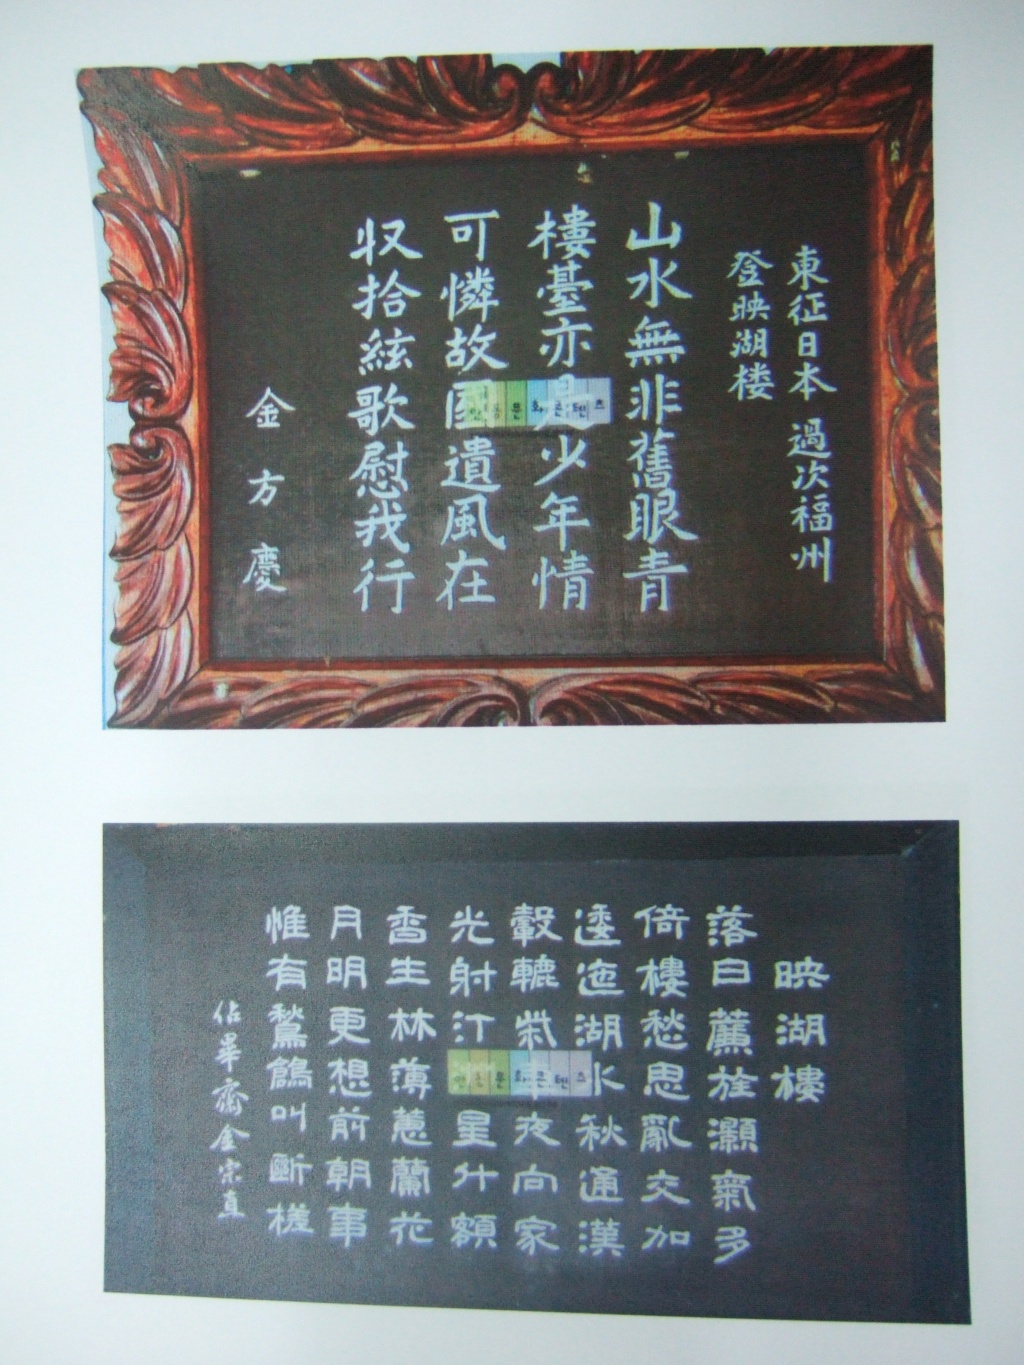 東征日本 過次福州
登映湖楼
山水無非舊眼青
樓臺亦是少年情
可憐故国遺風在
収拾絃歌慰我行
金方慶
안동문화콘텐츠
映湖樓
落日旌灝氣多
倚樓愁思亂交加
逶迤湖水秋通漢
轂轆夜向家
光射汀星什額
香生林薄蕙蘭花
月明更想前朝事
惟有鶖鶬叫斷槎
佔畢齋金宗直
안동문화콘텐츠